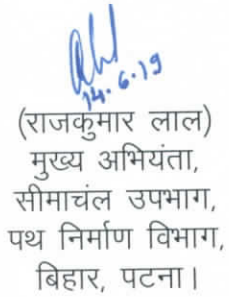 14.6.19
(राजकुमार लाल)
मुख्य अभियंता,
सीमाचंल उपभाग,
पथ निर्माण विभाग,
बिहार, पटना।